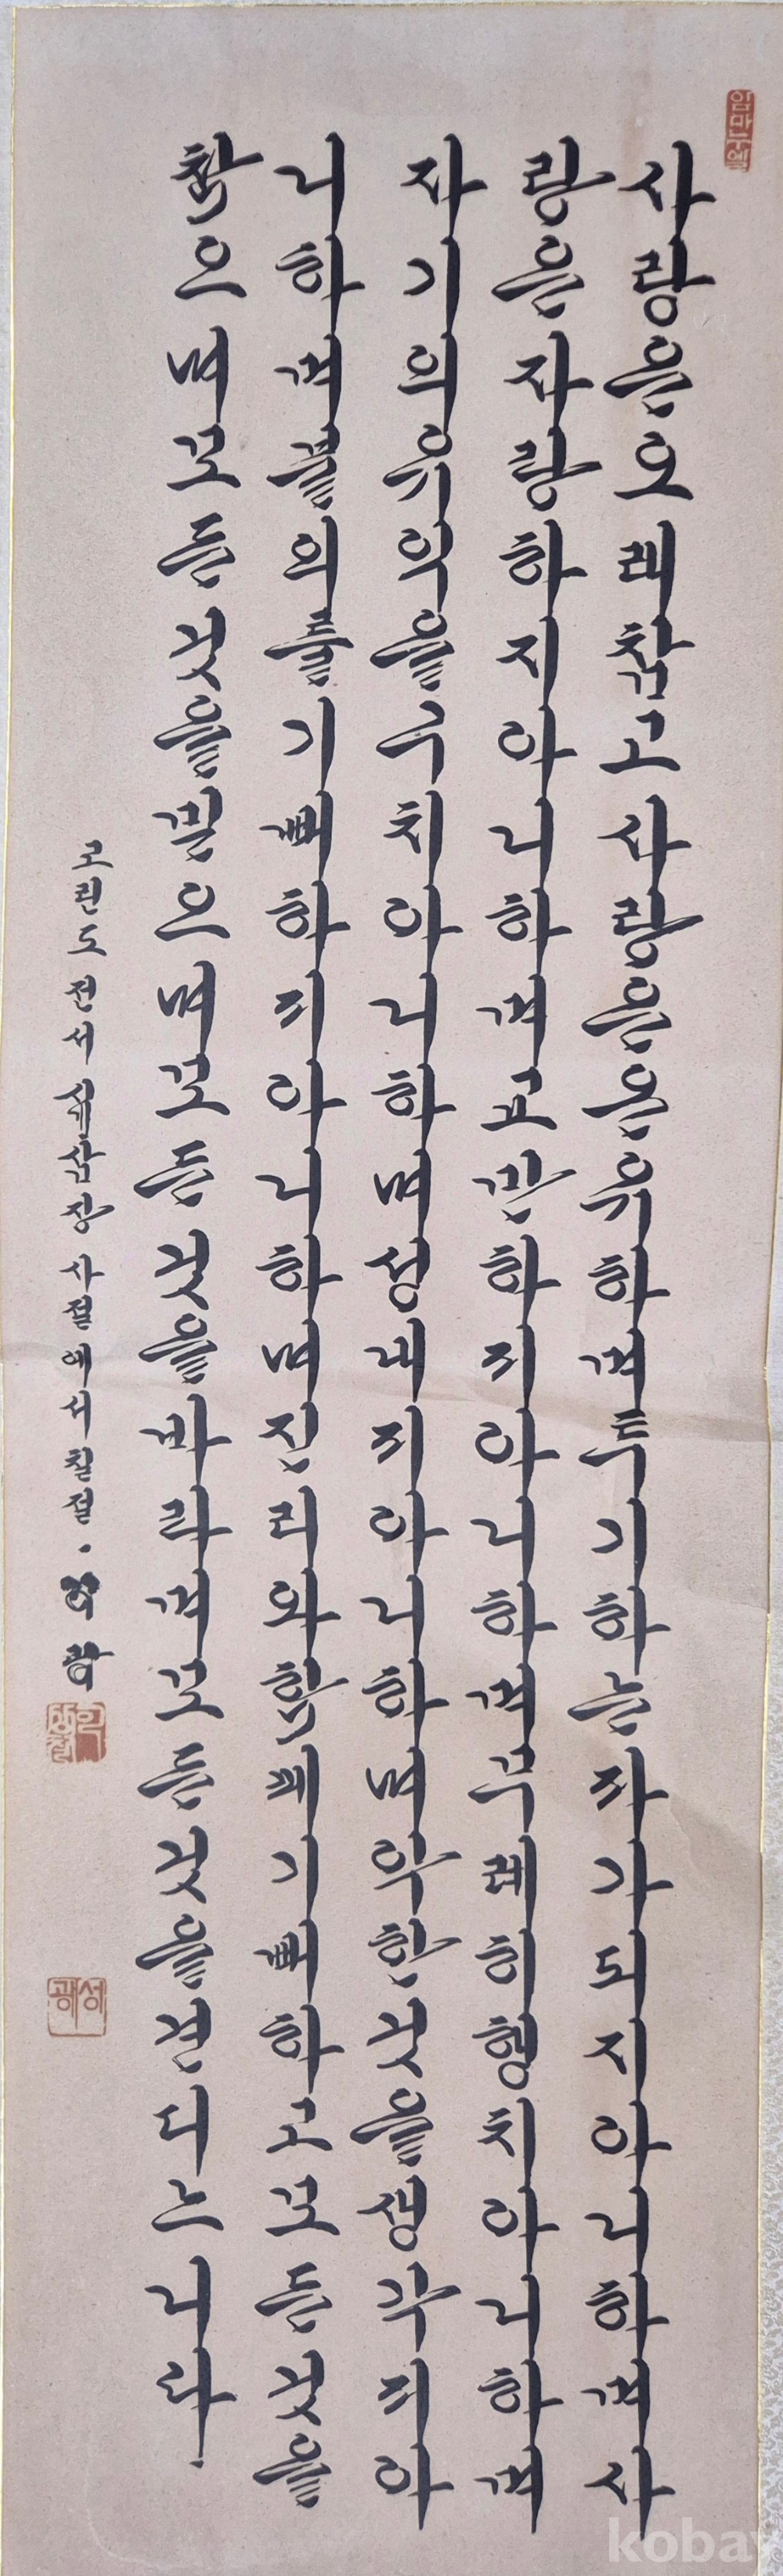 임마누엘
사랑은오래참고사랑은온유하며투기하는자가되지아니하며사
랑은자랑하지아니하며교만하지아니하며무례히행치아니하며
자기의유익을구치아니하며성내지아니하며악한것을생각지아
니하며불의를기뻐하지아니하며진리와함께기뻐하고모든것을
참으며모든것을믿으며모든것을바라며모든것을견디느니라
고린도전서십삼장사절에서칠절.
kobay